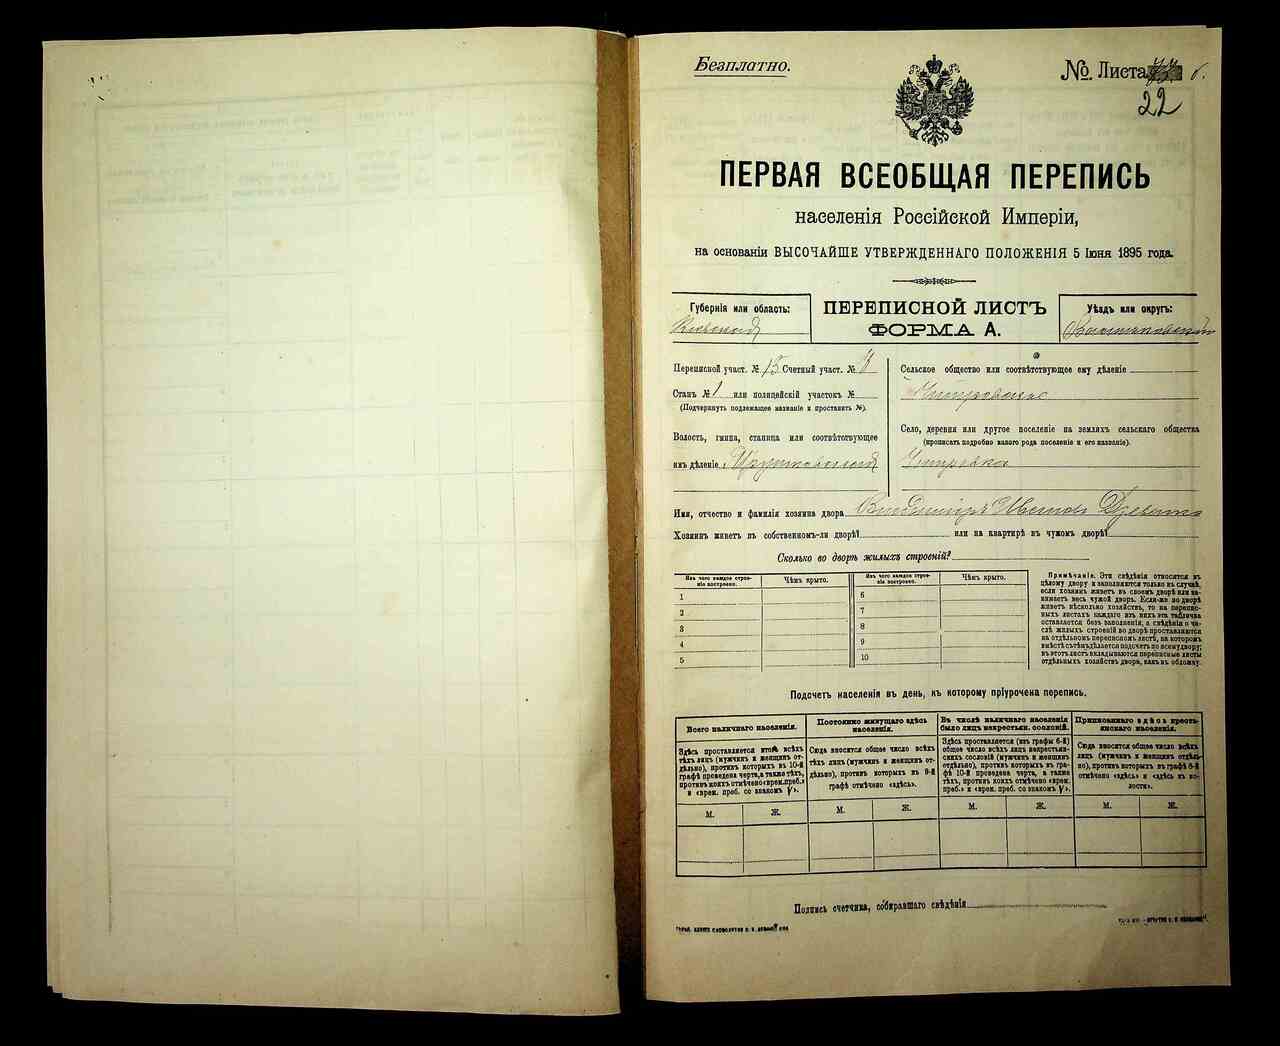 Безплатно.
№ Листа 6.
22
ПЕРВАЯ ВСЕОБЩАЯ ПЕРЕПИСЬ
населенія Россійской Имперіи,
на основаніи ВЫСОЧАЙШЕ УТВЕРЖДЕННАГО ПОЛОЖЕНІЯ 5 Іюня 1895 года.
Губернія или область:
Кіевская
ПЕРЕПИСНОЙ ЛИСТЪ
ФОРМА А.
Уѣздъ или округъ:
Васильковскій
Переписной участ. № 15 Счетный участ. №
Станъ № 1 или полицейскій участокъ №
(Подчеркнуть подлежащее названіе и проставить №).
Волость, гмина, станица или соотвѣтствующее
имъ дѣленіе
Сельское общество или соотвѣтствующее ему дѣленіе
Село, деревня или другое поселеніе на земляхъ сельскаго общества
(прописать подробно какого рода поселеніе и его названіе).
Имя, отчество и фамилія хозяина двора Владиміръ Ивановъ
Хозяинъ живетъ въ собственномъ-ли дворѣ? или на квартирѣ въ чужомъ дворѣ?
Сколько во дворѣ жилыхъ строеній?
Изъ чего каждое строеніе построено.
Чѣмъ крыто.
Изъ чего каждое строеніе построено.
Чѣмъ крыто.
1
2
3
4
5
6
7
8
9
10
Примѣчаніе. Эти свѣдѣнія относятся къ
цѣлому двору и заполняются только въ случаѣ,
если хозяинъ живетъ въ своемъ дворѣ или занимаетъ
весь чужой дворъ. Если-же во дворѣ
живетъ нѣсколько хозяйствъ, то на переписныхъ
листахъ каждаго изъ нихъ эта табличка
оставляется безъ заполненія, а свѣдѣнія о числѣ
жилыхъ строеній во дворѣ проставляются
на отдѣльномъ переписномъ листѣ, на которомъ
вмѣстѣ съ тѣмъ дѣлается подсчетъ по всему двору;
въ этотъ листъ вкладываются переписные листы
отдѣльныхъ хозяйствъ двора, какъ въ обложку.
Подсчетъ населенія въ день, къ которому пріурочена перепись.
Всего наличнаго населенія.
Постоянно живущаго здѣсь населенія.
Въ числѣ наличнаго населенія было лицъ некрестьян. сословій.
Приписаннаго здѣсь крестьянскаго населенія.
Здѣсь проставляется итогъ всѣхъ
тѣхъ лицъ (мужчинъ и женщинъ отдѣльно),
противъ которыхъ въ 10-й
графѣ проведена черта, а также тѣхъ,
противъ коихъ отмѣчено «врем. преб.»
и «врем. преб. со знакомъ V».
Сюда вносится общее число всѣхъ
тѣхъ лицъ (мужчинъ и женщинъ отдѣльно),
противъ которыхъ въ 9-й
графѣ отмѣчено «здѣсь».
Здѣсь проставляется (изъ графы 6-й)
общее число всѣхъ лицъ некрестьянскихъ
сословій (мужчинъ и женщинъ
отдѣльно), противъ которыхъ въ графѣ
10-й проведена черта, а также
тѣхъ, противъ коихъ отмѣчено «врем.
преб.» и «врем. преб. со знакомъ V».
Сюда вносится общее число всѣхъ
лицъ (мужчинъ и женщинъ отдѣльно),
противъ которыхъ въ графѣ 8-й
отмѣчено «здѣсь» и «здѣсь въ волости».
М. Ж. М. Ж. М. Ж. М. Ж.
Подпись счетчика, собиравшаго свѣдѣнія